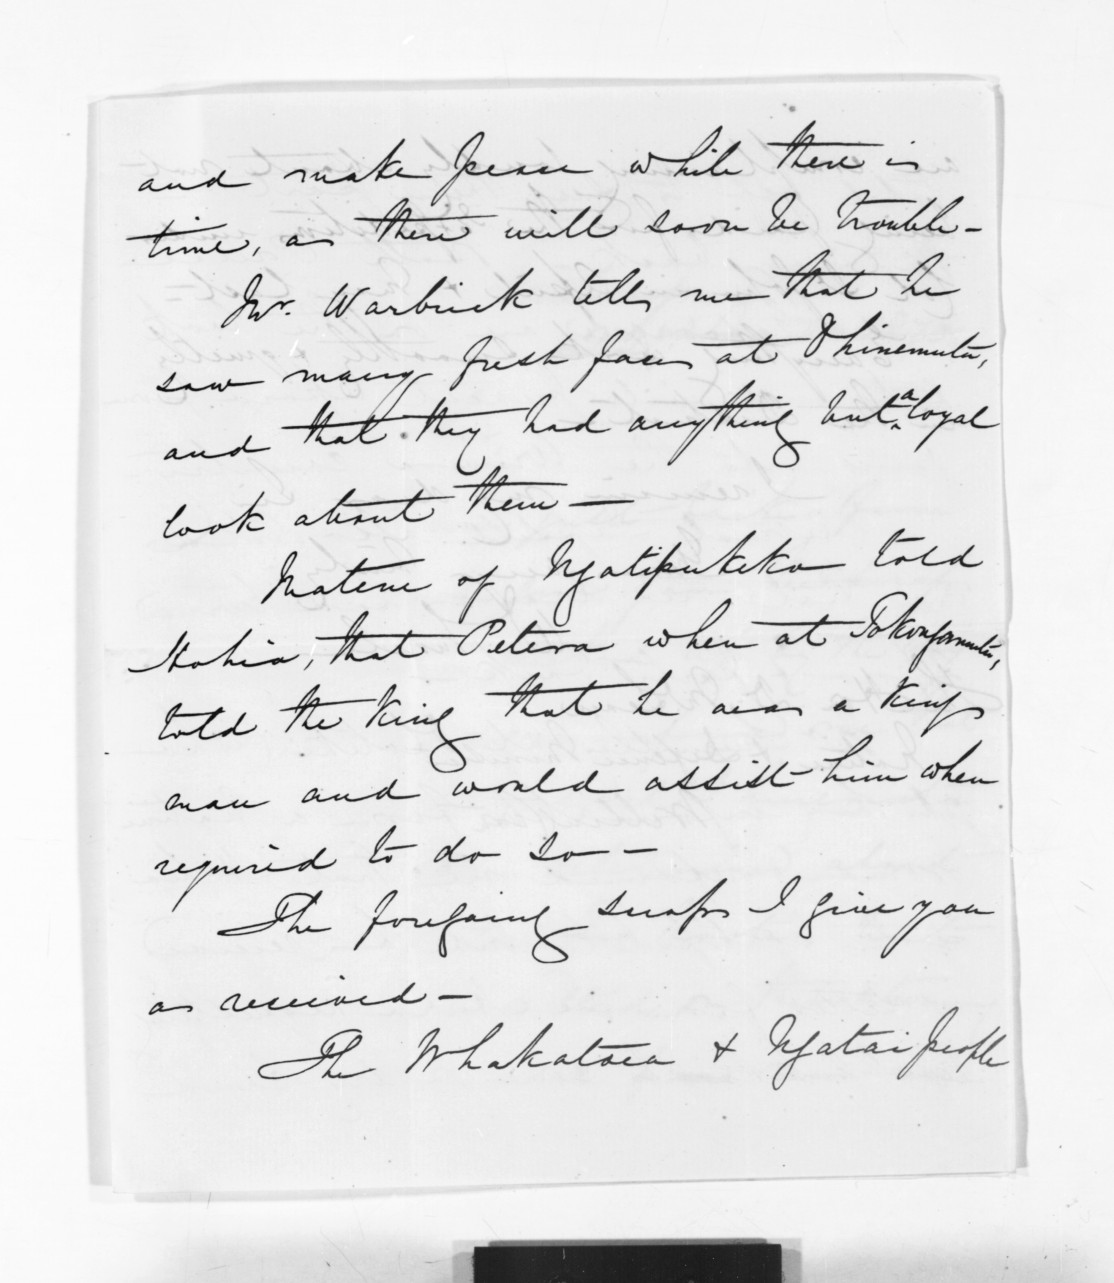 and make peace while there is
time, as there will soon be trouble –
Mr. Warbrick tells me that he
saw many fresh faces at Ohinemutu,
and that they had anything but a loyal
look about them –
Matene of Ngatipukeko told
Hohia, that Petera when at Tokangamutu,
told the King that he was a Kings
man and would assist him when
required to do so –
The foregoing scraps I give you
as received –
The Whakatoea & Ngatai people